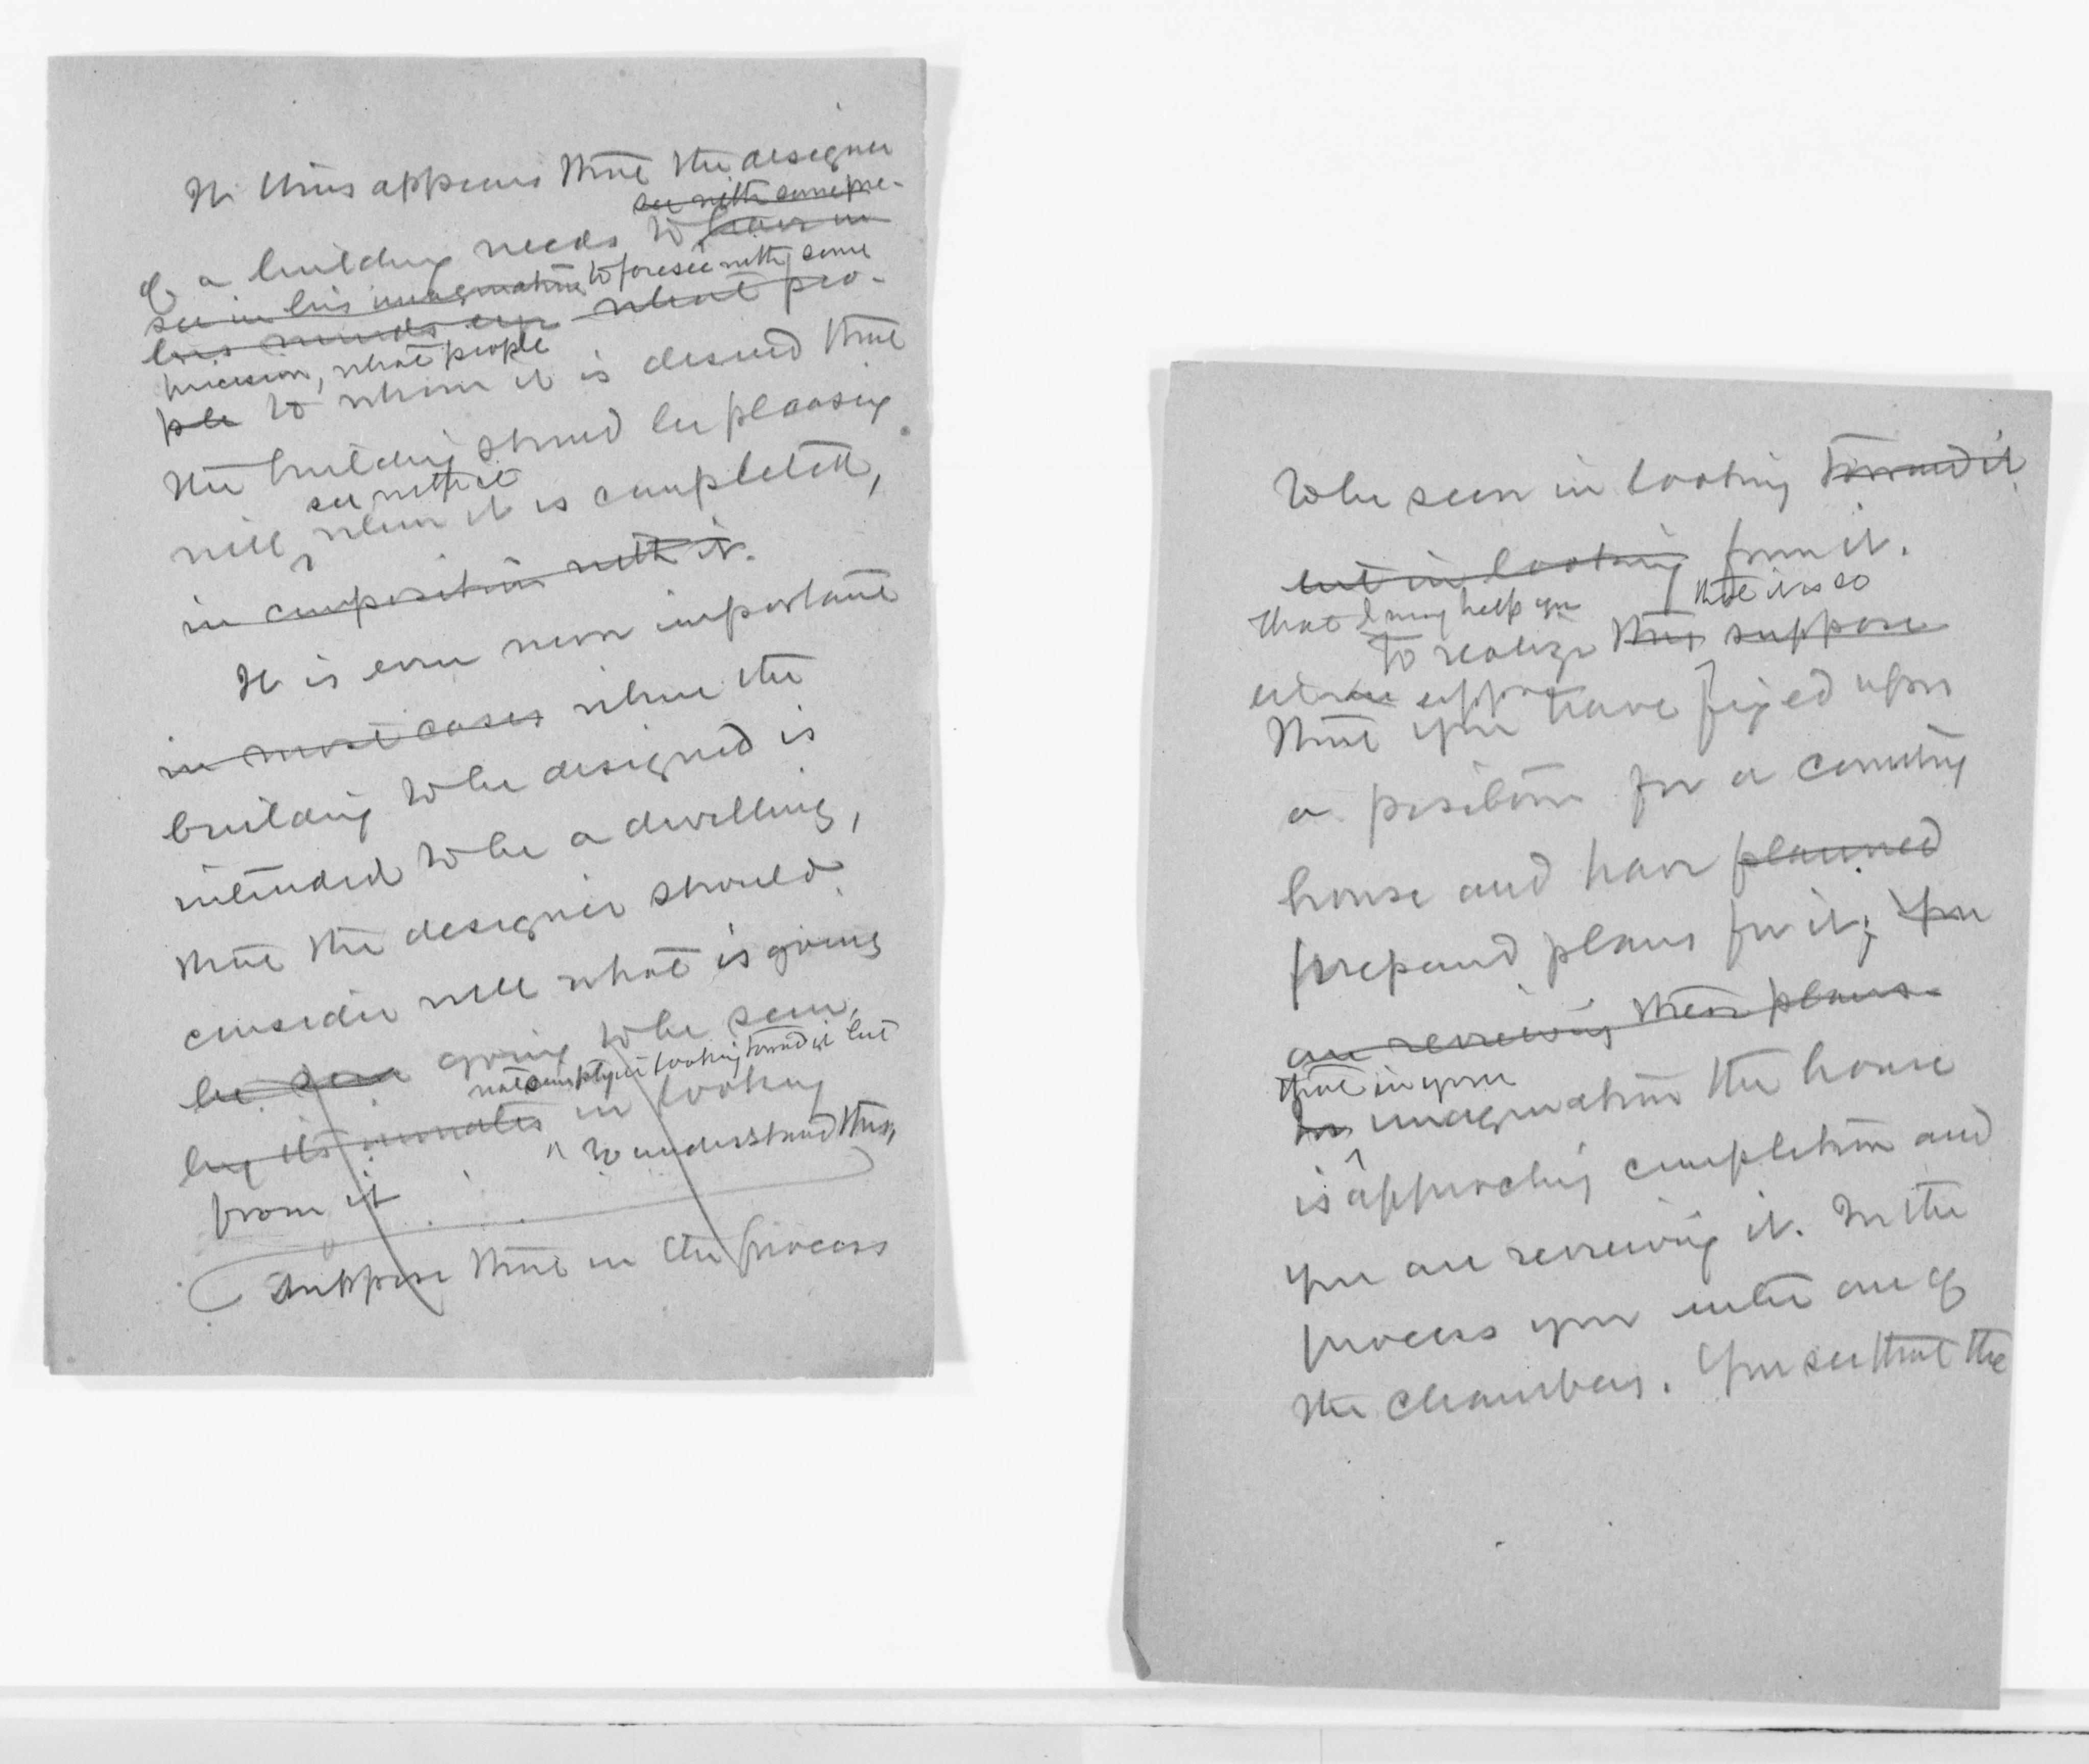 It thus appears that the designer
see with some pre-
of a building needs to have in
see in his imagination to foresee with some
his minds eye what peo-
precision, what people
ple to whom it is desired that
the building should be pleasing
see with it
will when it is completed,
in composition with it.
It is even more important
in most cases when the
building to be designed is
intended to be a dwelling,
that the designer should
consider well what is going
be seen going to be seen,
not simply in looking toward it but
by its inmates in looking
to understand this,
from it
Suppose that in the process
to be seen in looking toward it
but in looking from it.
that I may help you that it is so
to realize this suppose
suppose
that you have fixed upon
a position for a country
house and have planned
prepared plans for it; You
are reviewing these plans.
that in your
In imagination the house
is approaching completion and
you are reviewing it. In the
process you enter one of
the chambers. You see that the